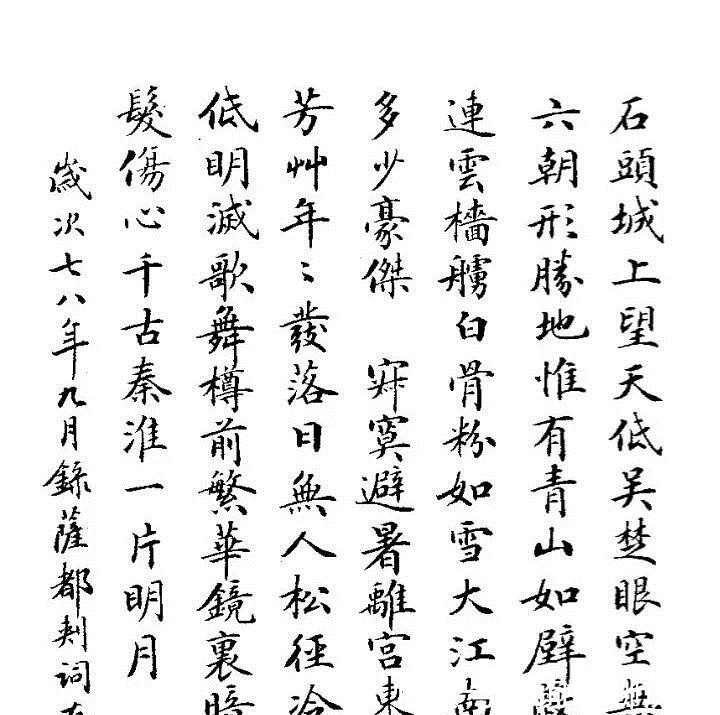 石頭城上望天低吳楚眼空無
六朝形勝地惟有青山如壁
連雲檣艣白骨粉如雪大江南
多少豪傑 寂寞避暑離宮東
芳艸年〻發落日無人松徑冷
低明滅歌舞樽前繁華鏡裏暗
髮傷心千古秦淮一片明月
歲次七八年九月錄薩都剌詞